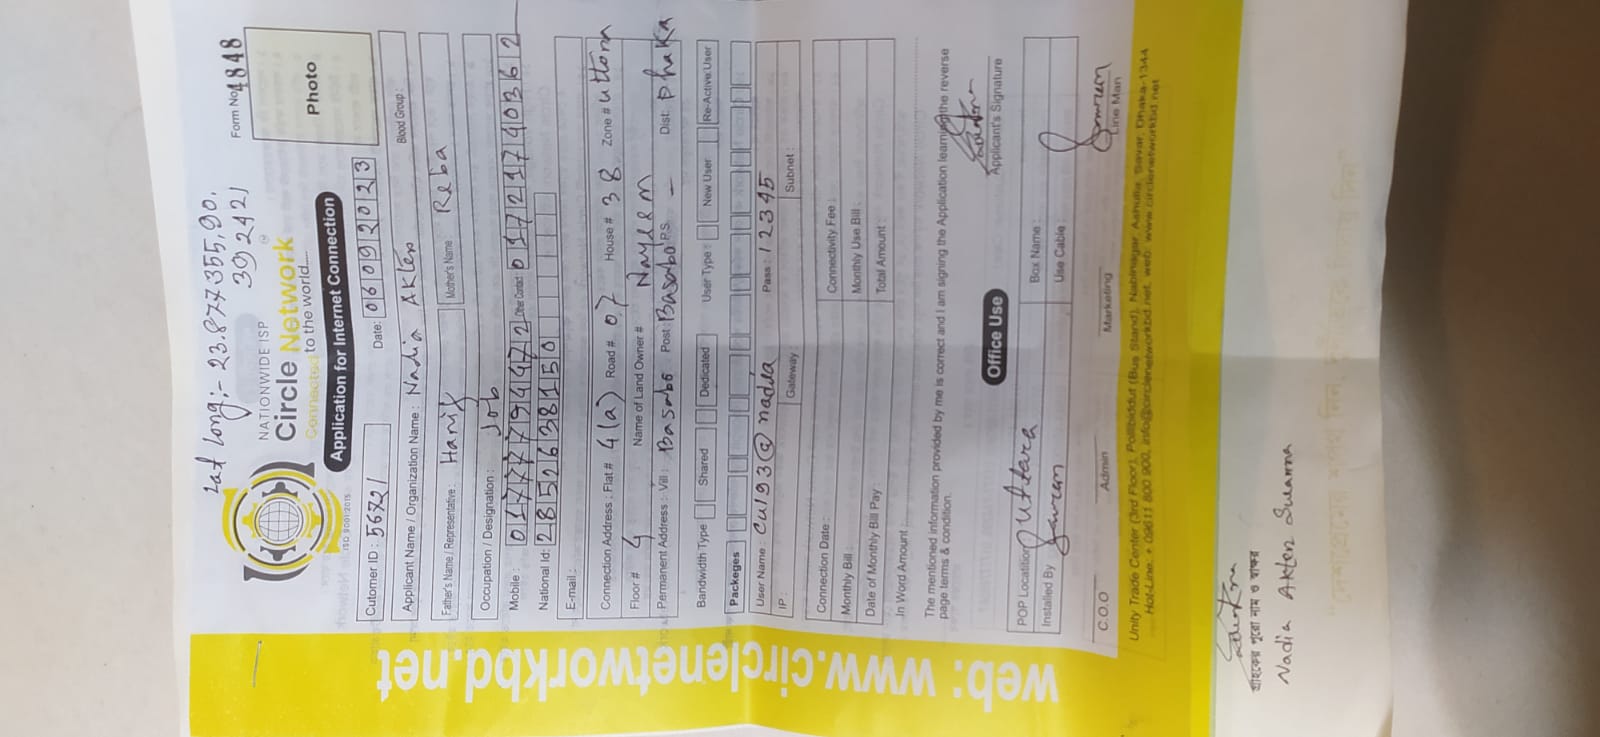 Lat Long:- 23.8777355,90.
39242]
Form No 4848
NATIONWIDE ISP
Circle Network
Connected to the world....
ISO 9001:2015
Photo
Application for Internet Connection
Cutomer ID : 56721 Date: 06092023
Applicant Name / Organization Name : Nadia Akter Blood Group :
Father's Name / Representative : Hanif Mother's Name : Reba
Occupation / Designation : Job
Mobile : 01777794972 Other Contact: 01721740362
National Id: 2852638150
E-mail :
Connection Address : Flat # 4(a) Road # 07 House # 38 Zone # uttora
Floor # 4 Name of Land Owner # Nayeem
Permanent Address : Vill : Basabo Post : Basabo P.S. — Dist: Dhaka
Bandwidth Type Shared Dedicated User Type : New User Re-Active User
Packeges
User Name : cu193@nadia Pass : 12345
IP : Gateway : Subnet :
Connection Date : Connectivity Fee :
Monthly Bill : Monthly Use Bill :
Date of Monthly Bill Pay : Total Amount :
In Word Amount
The mentioned information provided by me is correct and I am signing the Application learning the reverse
page terms & condition.
Applicant's Signature
Office Use
POP Locatition Uttara Box Name :
Installed By Use Cable :
C.O.O Admin Marketing Line Man
Unity Trade Center (3rd Floor), Pollibiddut (Bus Stand), Nabinagar, Ashulia, Savar, Dhaka-1344
Hot-Line: + 09611 800 900, info@circlenetworkbd.net, web: www.circlenetworkbd.net
web: www.circlenetworkbd.net
গ্রাহকের পুরো নাম ও স্বাক্ষর
Nadia Akter